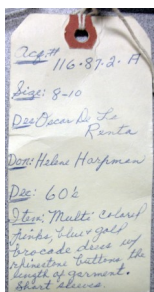 Acq.#
116.87.2.A
Size: 8-10
Des: Oscar De La
Renta
Don: Helene Harpman
Dec: 60's
Item: Multi colored
pinks, blue & gold
brocade dress w/
rhinestone buttons the
length of garment.
Short sleeves.